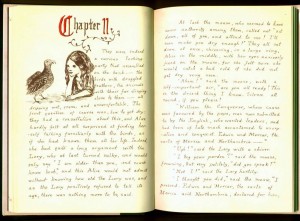 Chapter II.
They were indeed
a curious looking
party that assembled
on the bank — the
birds with draggled
feathers, the animals
with their fur clinging
close to them — all
dripping wet, cross, and uncomfortable. The
first question of course was, how to get dry:
they had a consultation about this, and Alice
hardly felt at all surprised at finding her-
self talking familiarly with the birds, as
if she had known them all her life. Indeed
she had quite a long argument with the
Lory, who at last turned sulky, and would
only say "I am older than you, and must
know best," and this Alice would not admit
without knowing how old the Lory was, and
as the Lory positively refused to tell its
age, there was nothing more to be said.
At last the mouse, who seemed to have
some authority among them, called out "sit
down, all of you, and attend to me! I'll
soon make you dry enough!" They all sat
down at once, shivering, in a large ring,
Alice in the middle, with her eyes anxiously
fixed on the mouse, for she felt sure she
would catch a bad cold if she did not
get dry very soon.
"Ahem!" said the mouse, with a
self-important air, "are you all ready? This
is the driest thing I know. Silence all
round, if you please!
"William the Conqueror, whose cause
was favoured by the pope, was soon submitted
to by the English, who wanted leaders, and
had been of late much accustomed to usurp-
ation and conquest. Edwin and Morcar, the
earls of Mercia and Northumbria—"
"Ugh!" said the Lory with a shiver.
"I beg your pardon?" said the mouse,
frowning, but very politely, "did you speak?"
"Not I!" said the Lory hastily.
"I thought you did," said the mouse, "I
proceed. Edwin and Morcar, the earls
of Mercia and Northumbria,